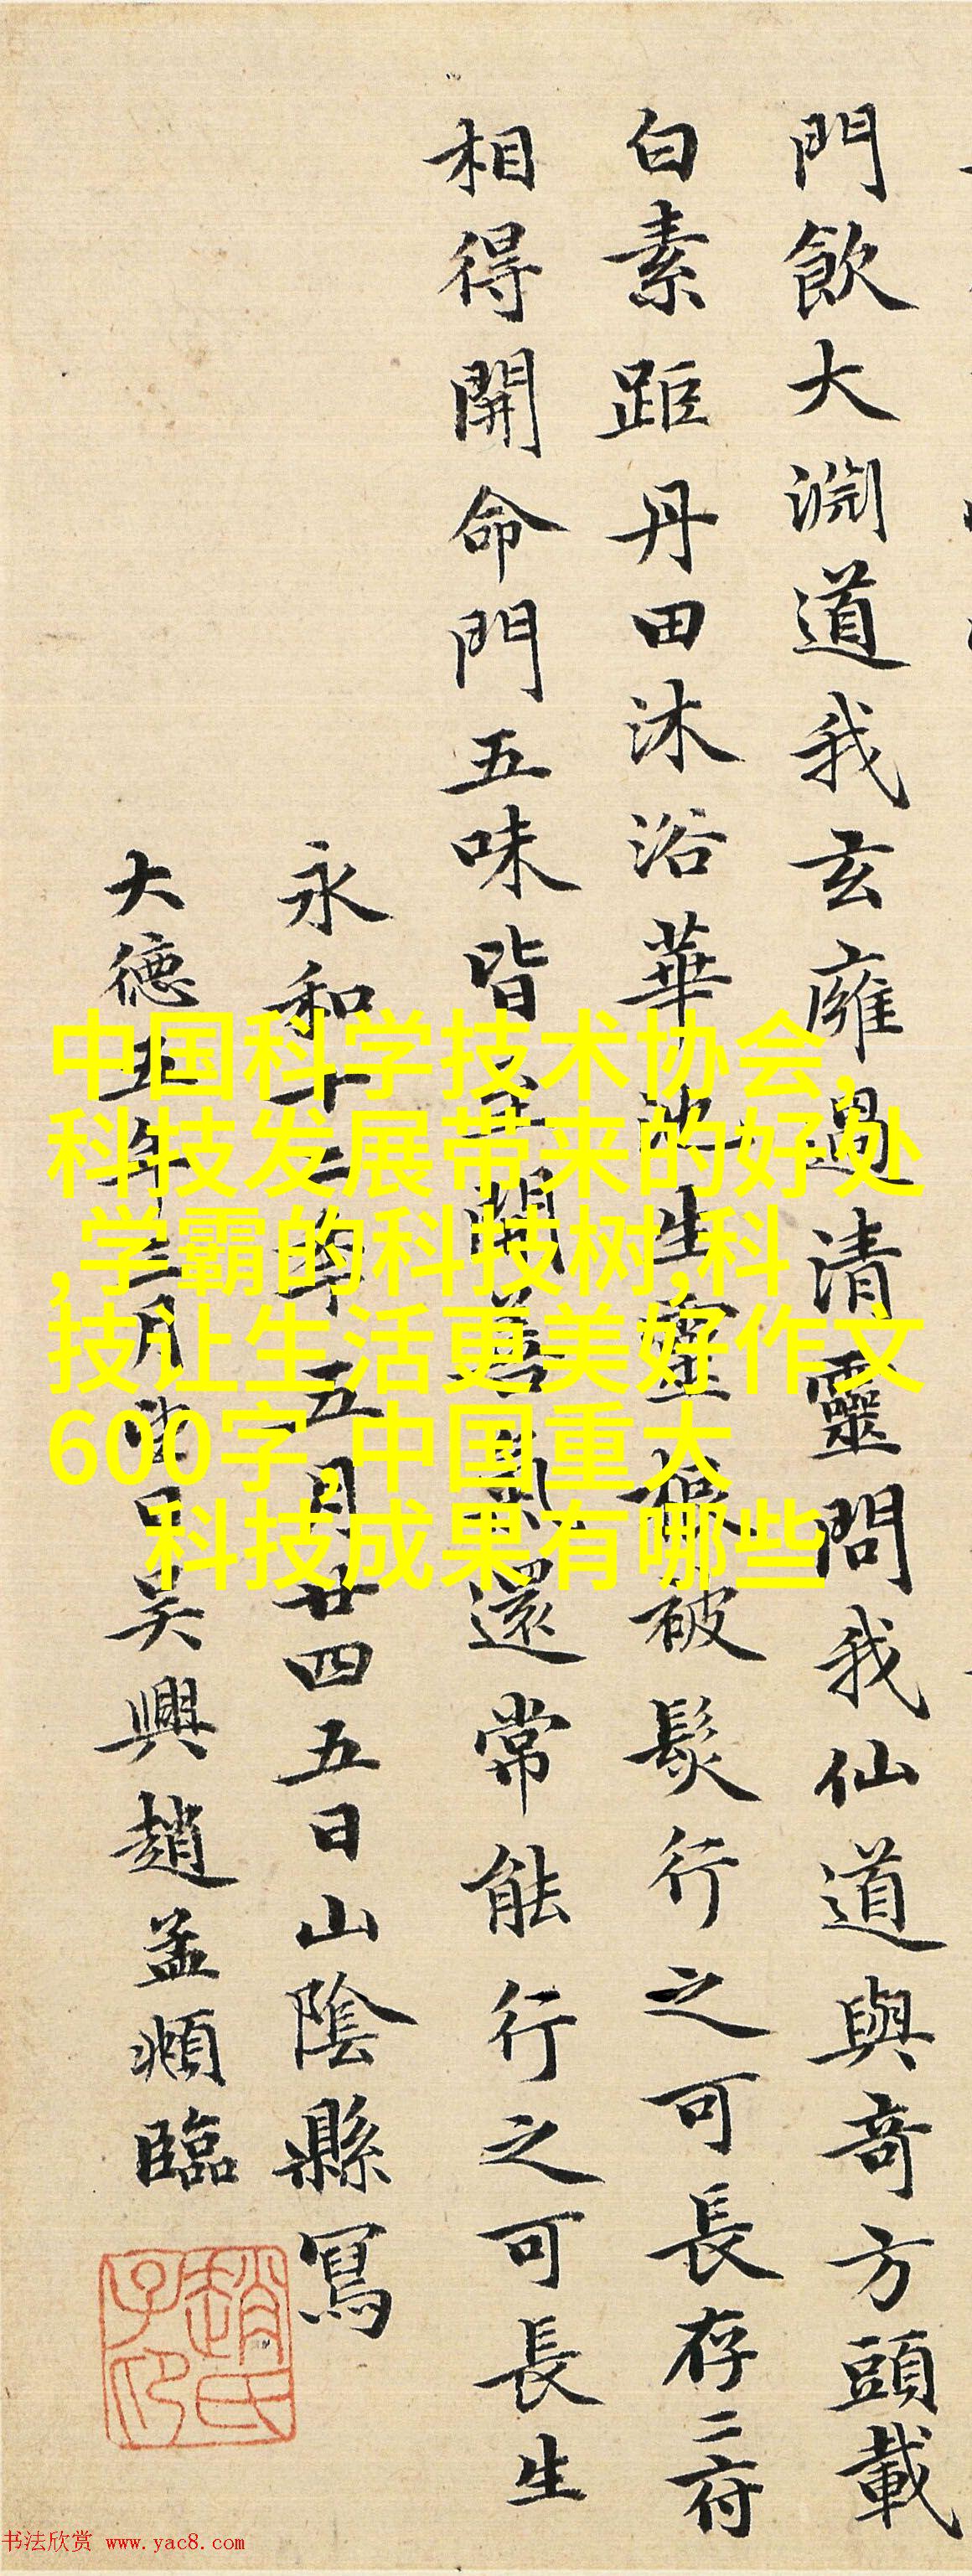 門飲大渊道我玄癰過清靈問我仙道與奇方頭載
白素距丹田沐浴華池生靈根被髮行之可長存二府
相得開命門五味皆至開善氣還常能行之可長生
永和十二年五月廿四五日山陰縣寫
大德五年二月望日吴興趙孟頫臨
趙氏子印
中国科学技术协会,
科技发展带来的好处
,学霸的科技树,科
技让生活更美好作文
600字,中国重大
科技成果有哪些
书法欣赏 www.yac8.com